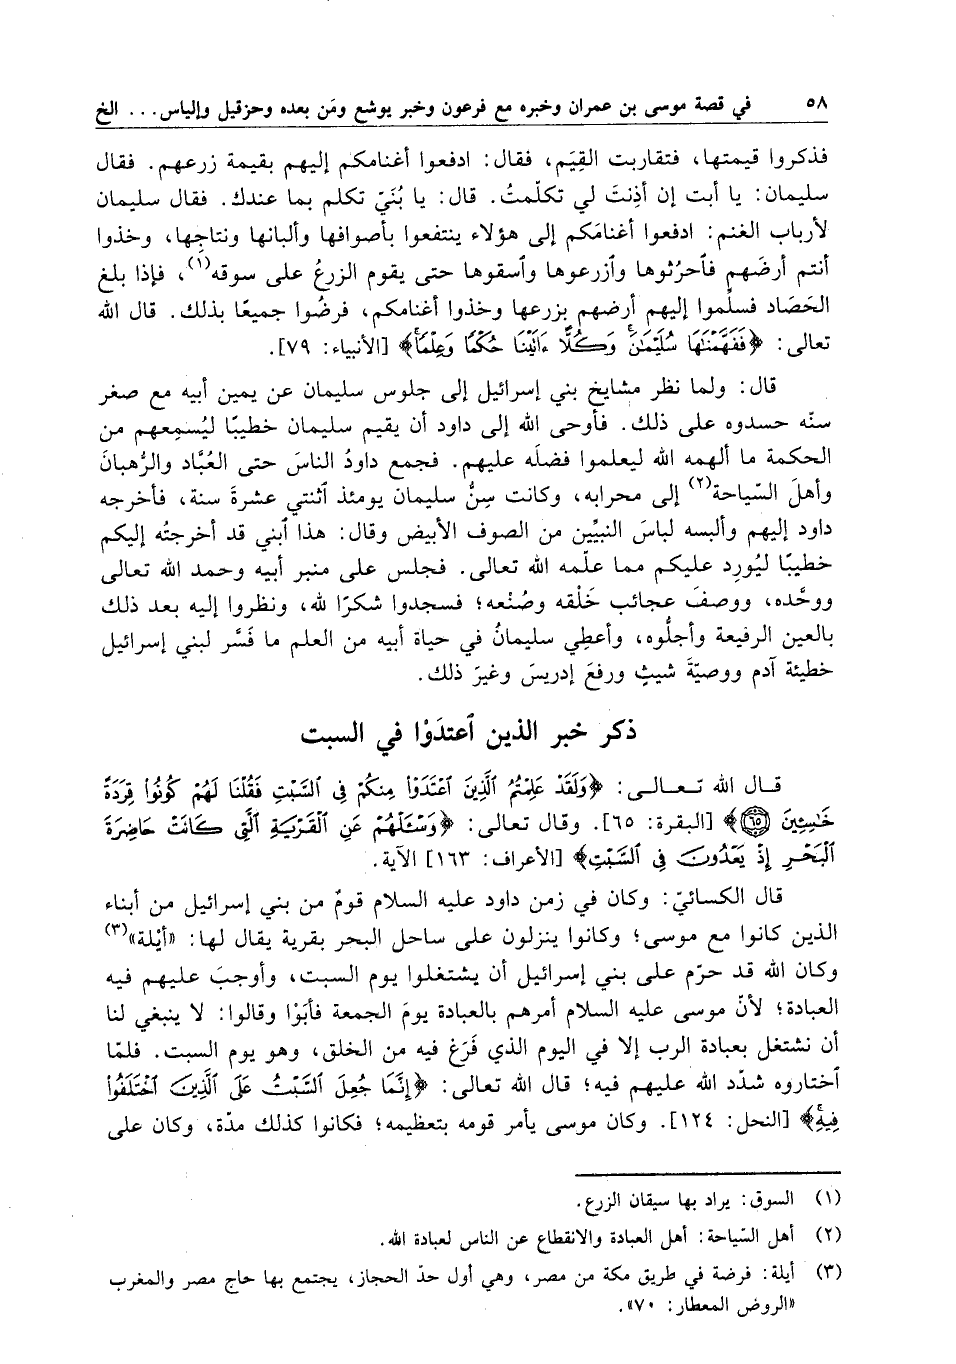 ٥٨ في قصة موسى بن عمران وخبره مع فرعون وخبر يوشع ومَن بعده وحزقيل وإلياس... الخ
فذكروا قيمتها، فتقاربت القِيَم، فقال: ادفعوا أغنامكم إليهم بقيمة زرعهم. فقال
سليمان: يا أبت إن أذِنتَ لي تكلّمتُ. قال: يا بُنَيّ تكلم بما عندك. فقال سليمان
لأرباب الغنم: ادفعوا أغنامَكم إلى هؤلاء ينتفعوا بأصوافها وألبانها ونتاجِها، وخذوا
أنتم أرضَهم فٱحرُثوها وٱزرعوها وٱسقوها حتى يقوم الزرعُ على سوقه(١)، فإذا بلغ
الحَصَاد فسلِّموا إليهم أرضهم بزرعها وخذوا أغنامكم، فرضُوا جميعًا بذلك. قال الله
تعالى: ﴿فَفَهَّمْنَٰهَا سُلَيْمَٰنَ ۚ وَكُلًّا ءَاتَيْنَا حُكْمًا وَعِلْمًا ۚ﴾ [الأنبياء: ٧٩].
قال: ولما نظر مشايخ بني إسرائيل إلى جلوس سليمان عن يمين أبيه مع صغر
سنّه حسدوه على ذلك. فأوحى الله إلى داود أن يقيم سليمان خطيبًا ليُسمِعهم من
الحكمة ما ألهمه الله ليعلموا فضلَه عليهم. فجمع داودُ الناسَ حتى العُبَّاد والرُهبانَ
وأهلَ السّياحة(٢) إلى محرابه، وكانت سِنُّ سليمان يومئذ ٱثنتي عشرةَ سنة، فأخرجه
داود إليهم وألبسه لباسَ النبيِّين من الصوف الأبيض وقال: هذا ٱبني قد أخرجتُه إليكم
خطيبًا ليُورِد عليكم مما علّمه الله تعالى. فجلس على منبر أبيه وحمد الله تعالى
ووحَّده، ووصفَ عجائب خَلْقه وصُنْعه؛ فسجدوا شكرًا لله، ونظروا إليه بعد ذلك
بالعين الرفيعة وأجلُّوه، وأعطِي سليمانُ في حياة أبيه من العلم ما فَسَّر لبني إسرائيل
خطيئة آدم ووصيّةَ شيثٍ ورفعَ إدريسَ وغيرَ ذلك.
ذكر خبر الذين ٱعتدَوْا في السبت
قال الله تعالى: ﴿وَلَقَدْ عَلِمْتُمُ ٱلَّذِينَ ٱعْتَدَوْا۟ مِنكُمْ فِى ٱلسَّبْتِ فَقُلْنَا لَهُمْ كُونُوا۟ قِرَدَةً
خَٰسِـِٔينَ ۝٦٥﴾ [البقرة: ٦٥]. وقال تعالى: ﴿وَسْـَٔلْهُمْ عَنِ ٱلْقَرْيَةِ ٱلَّتِى كَانَتْ حَاضِرَةَ
ٱلْبَحْرِ إِذْ يَعْدُونَ فِى ٱلسَّبْتِ﴾ [الأعراف: ١٦٣] الآية.
قال الكسائيّ: وكان في زمن داود عليه السلام قومٌ من بني إسرائيل من أبناء
الذين كانوا مع موسى؛ وكانوا ينزلون على ساحل البحر بقرية يقال لها: «أيْلة»(٣)
وكان الله قد حرّم على بني إسرائيل أن يشتغلوا يوم السبت، وأوجبَ عليهم فيه
العبادة؛ لأنّ موسى عليه السلام أمرهم بالعبادة يومَ الجمعة فأبَوْا وقالوا: لا ينبغي لنا
أن نشتغل بعبادة الرب إلا في اليوم الذي فَرَغ فيه من الخلق، وهو يوم السبت. فلمّا
ٱختاروه شدّد الله عليهم فيه؛ قال الله تعالى: ﴿إِنَّمَا جُعِلَ ٱلسَّبْتُ عَلَى ٱلَّذِينَ ٱخْتَلَفُوا۟
فِيهِ ۚ﴾ [النحل: ١٢٤]. وكان موسى يأمر قومه بتعظيمه؛ فكانوا كذلك مدّة، وكان على
(١) السوق: يراد بها سيقان الزرع.
(٢) أهل السّياحة: أهل العبادة والانقطاع عن الناس لعبادة الله.
(٣) أيلة: فرضة في طريق مكة من مصر، وهي أول حدّ الحجاز، يجتمع بها حاج مصر والمغرب
«الروض المعطار: ٧٠».